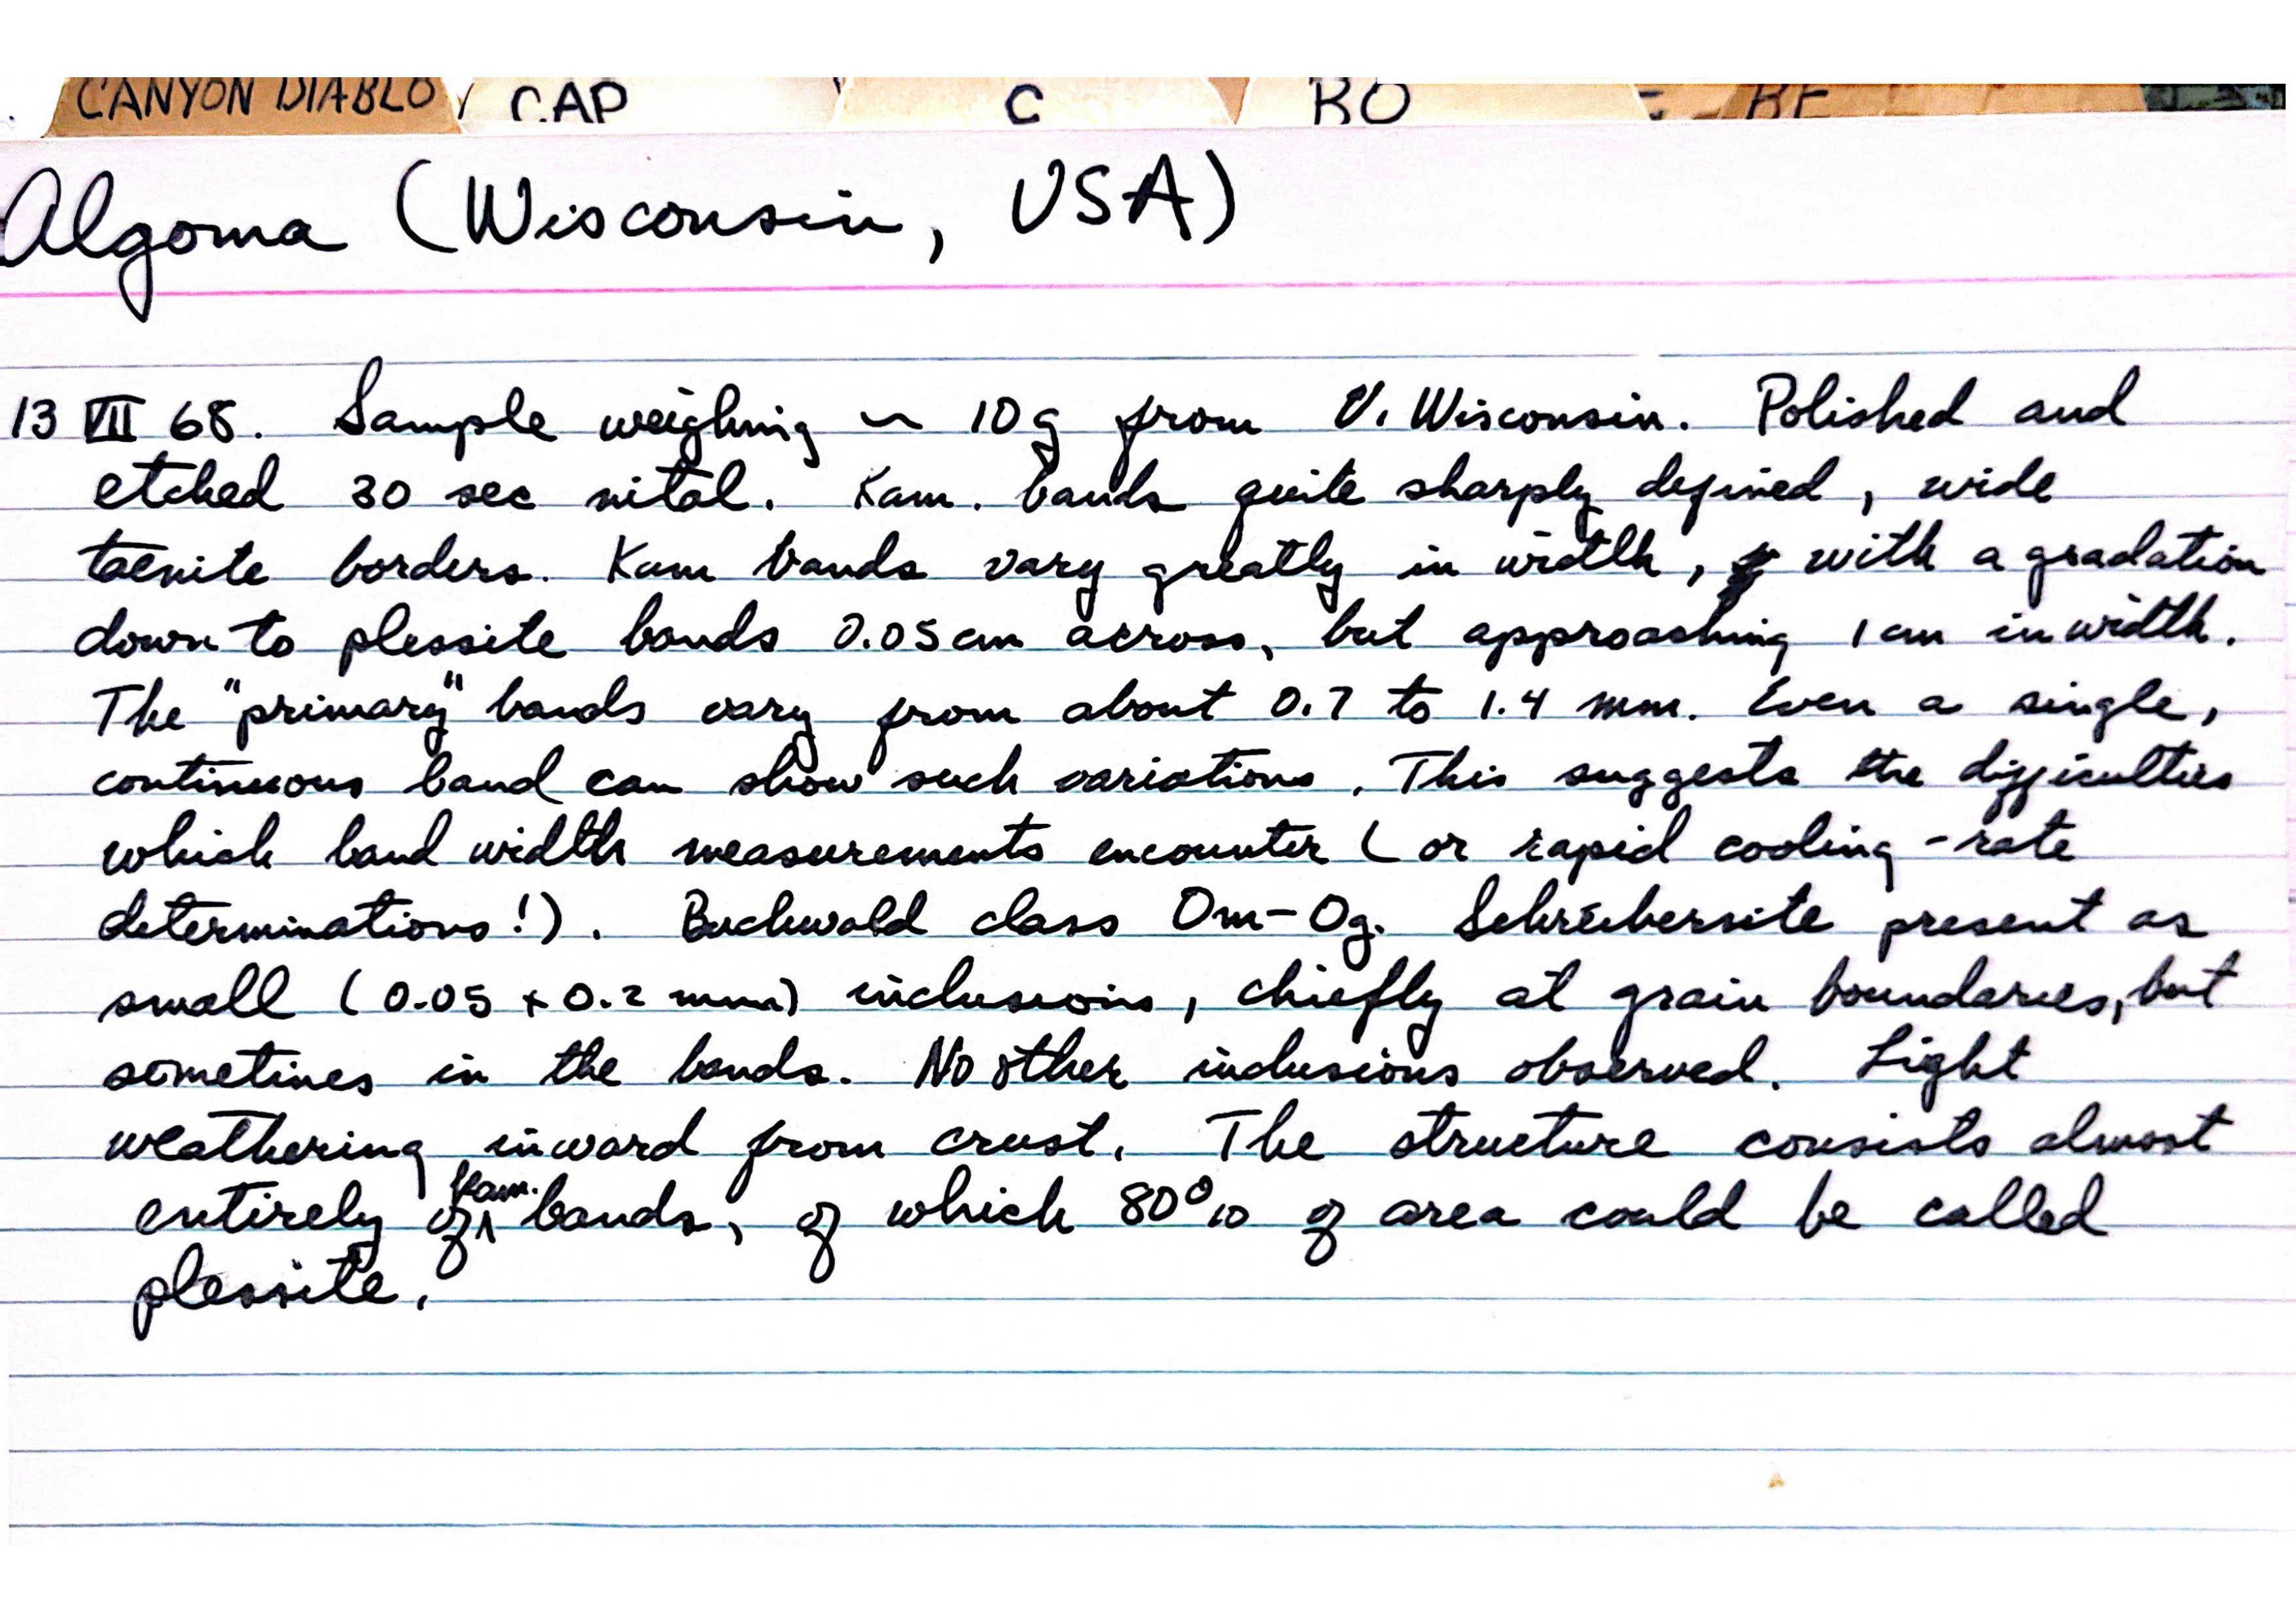 CANYON DIABLO CAP C BO BE
Algoma (Wisconsin, USA)
13 VII 68. Sample weighing ~ 10g from U. Wisconsin. Polished and
etched 30 sec nital. Kam. bands quite sharply defined, wide
taenite borders. Kam bands vary greatly in width, with a gradation
down to plessite bands 0.05cm across, but approaching 1 cm in width.
The "primary" bands vary from about 0.7 to 1.4 mm. Even a single,
continuous band can show such variations. This suggests the difficulties
which band width measurements encounter (or rapid cooling-rate
determinations!). Buchwald class Om-Og. Schreibersite present as
small (0.05 x 0.2 mm) inclusions, chiefly at grain boundaries, but
sometimes in the bands. No other inclusions observed. Light
weathering inward from crust. The structure consists almost
entirely of kam. bands, of which 80% of area could be called
plessite.